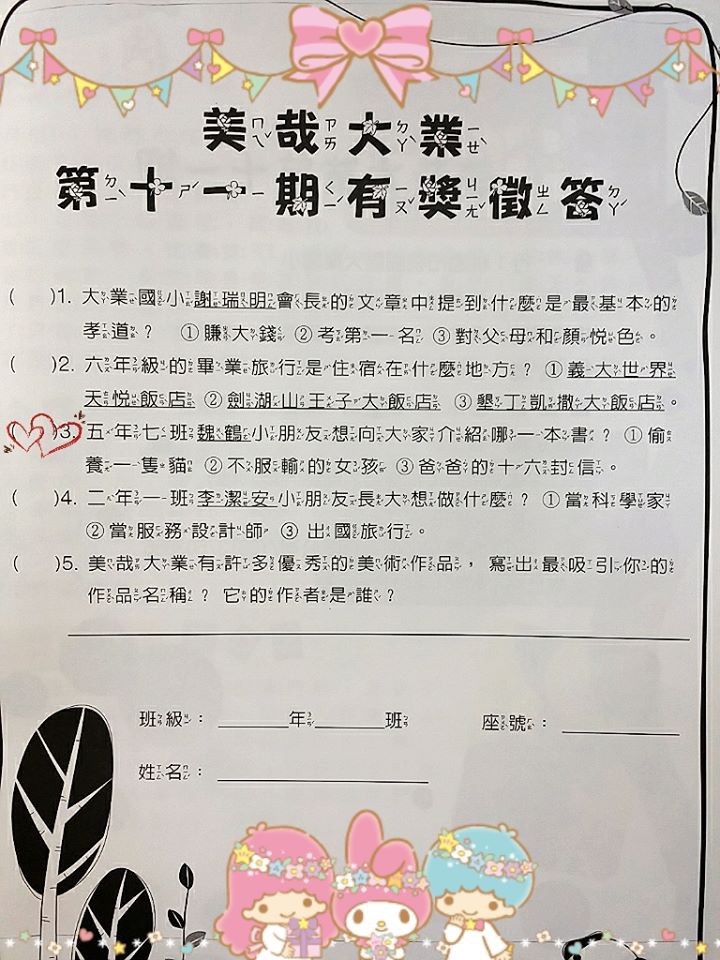 美哉大業
第十一期有獎徵答
(　)1. 大業國小謝瑞明會長的文章中提到什麼是最基本的
孝道？ ①賺大錢 ②考第一名 ③對父母和顏悅色。
(　)2. 六年級的畢業旅行是住宿在什麼地方？ ①義大世界
天悅飯店 ②劍湖山王子大飯店 ③墾丁凱撒大飯店。
(　)3. 五年七班魏鶴小朋友想向大家介紹哪一本書？ ①偷
養一隻貓 ②不服輸的女孩 ③爸爸的十六封信。
(　)4. 二年一班李潔安小朋友長大想做什麼？ ①當科學家
②當服務設計師 ③ 出國旅行。
(　)5. 美哉大業有許多優秀的美術作品，寫出最吸引你的
作品名稱？它的作者是誰？
班級：______年______班　座號：______
姓名：______